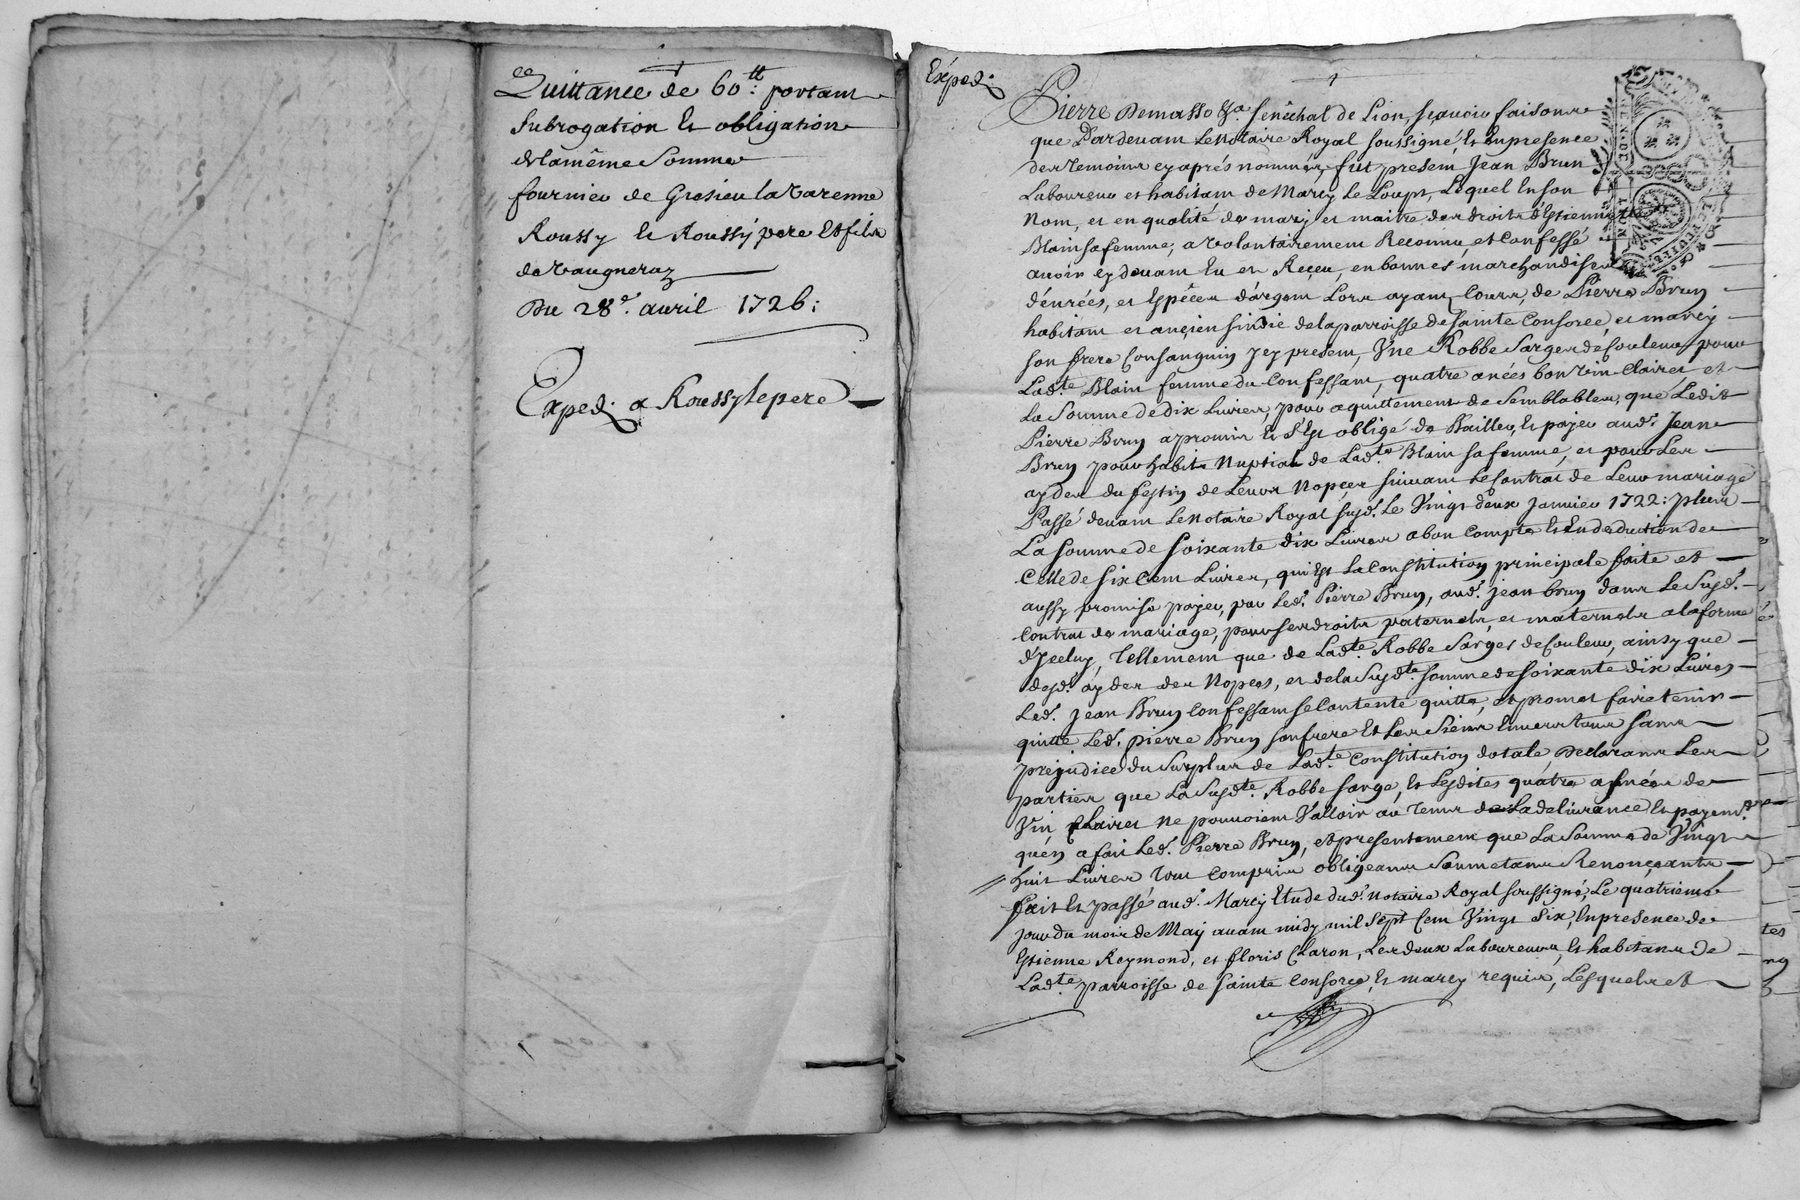 Quittance de 60ᵗᵗ: portant
Subrogation et obligation
de la même Somme
fournier de Gresieu la varenne
Roussy et Roussy pere et fils
de vaugneray
Du 28e. avril 1726:
Exped. a Roussy le pere
Exped.
Pierre Demasso &a. Senéchal de Lion, scavoir faisons
que Pardevant Le Notaire Royal soussigné, et En presence
des temoins cy aprés nommez, fut present Jean Brun
Laboureur et habitant de Marcy Le Loup, Lequel En son
Nom, et en qualité de mary et maitre des droits d'Estiennette
Blain sa femme, a volontairement Reconnu, et confessé
avoir cy devant Eu et Reçeu, en bonnes marchandises
dénrées, et Espéces d'argent Lors ayant Cours, de Pierre Brun
habitant et ançien sindic de la parroisse de Sainte Consorce, et marcy
son frere Consanguin icy present, Vne Robbe Sarges de Couleur pour
Ladte. Blain femme du Confessant, quatre anées bon vin Clairet et
La Somme de dix Livres, pour aquittement de Semblables, que Ledit
Pierre Brun a promis Et S'Est obligé de Bailler, Et payer aud. Jean
Brun pour habits Nuptials de Ladte. Blain sa femme, et pour Les
ayder du festin de Leurs Nopçes, suivant Le Contrat de Leur mariage
Passé devant Le Notaire Royal susd. Le Vingt deux Janvier 1722: plus
La somme de soixante dix Livres a bon compte Et En deduction de
Celle de six Cent Livres, qui Est La Constitution principale faite et
aussy promise payer, par Led. Pierre Brun, aud. jean brun dans Le Susd.
Contrat de mariage, pour ses droits paternels, et maternels a la forme
d'Jceluy, tellement que de Ladte. Robbe Sarges de Couleur, ainsy que
desd. ayder des Nopces, et de la Susdte. somme de soixante dix Livres
Led. Jean Brun Confessant se Contente quitte, et promet faire tenir
quitte Led. pierre Brun son frere Et Les Siens Envers tous sans
préjudice du Surplus de Ladte. Constitution dotale, Declarans Les
parties que La Susdte. Robbe sarge, et Lesdites quatre asnées de
Vin Clairet ne pouvoient Valloir au tems de La delivrance Et payemt.
qu'en a fait Led. Pierre Brun, et presentement que La Somme de Vingt
huit Livres tout compris obligeans Soumetans Renonçeants
fait Et passé aud. Marcy Etude dud. notaire Royal soussigné, Le quatriéme
jour du mois de May avant midy mil Sept Cent Vingt Six, En presence de
Estienne Reymond, et floris Claron, Les deux Laboureurs, Et habitans de
Ladte. parroisse de Sainte Consorce, Et marcy requis, Lesquels et